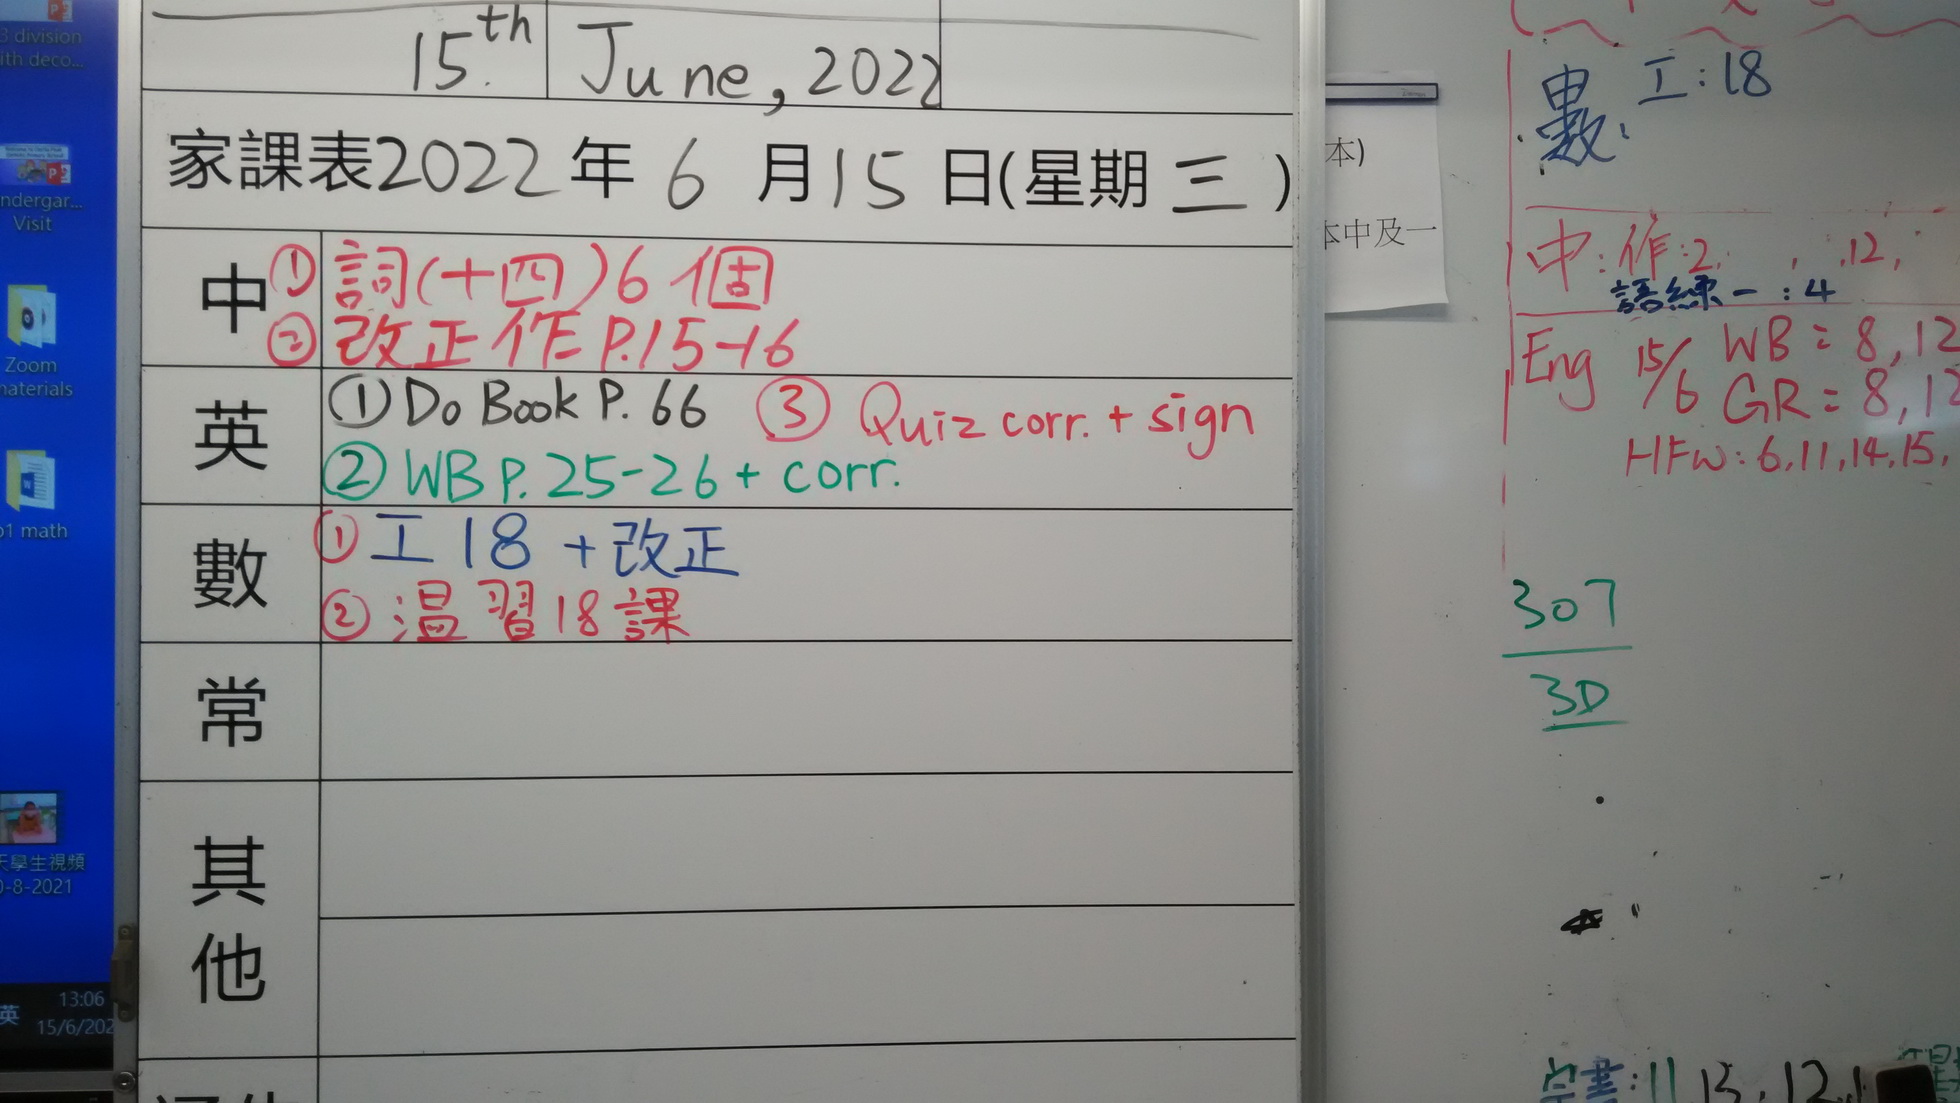 3 division
ith deco...
ndergar...
Visit
Zoom
materials
p1 math
天學生視頻
0-8-2021
英
13:06
15/6/202
15.th June, 2022
家課表2022年 6 月15 日(星期 三 )
中
① 詞(十四)6個
② 改正作P.15-16
英
① Do Book P. 66 ③ Quiz corr. + sign
② WB P. 25-26 + corr.
數
① 工 18 + 改正
② 温習18課
常
其他
本)
本中及一
數: 工:18
中:作:2, 12,
語練一:4
Eng 15/6 WB = 8, 12
GR = 8, 12
HFW: 6,11,14,15,
307
3D
書:11 13, 12,